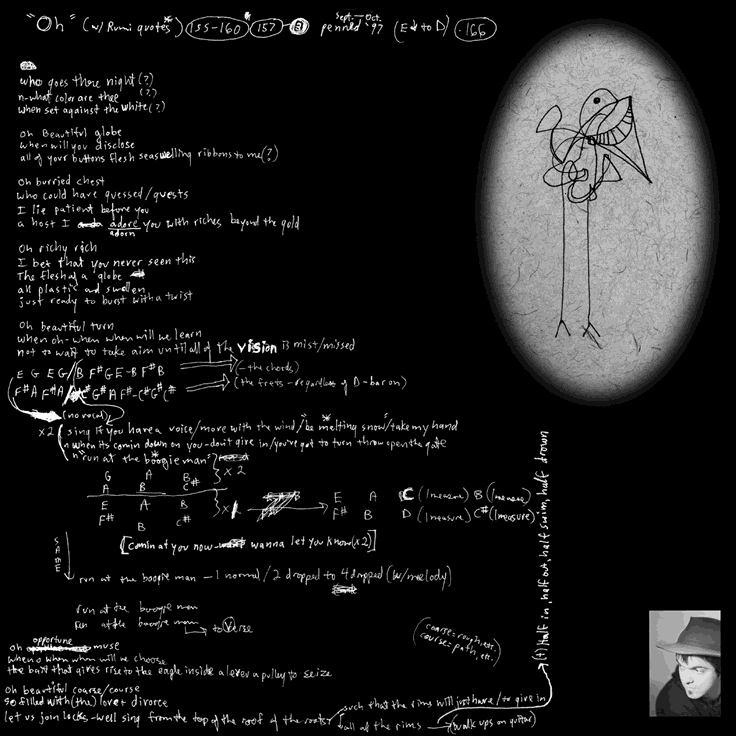 "Oh" (w/ Rumi quotes*) (155-160) (157) penned Sept.-Oct. '97 (E↓to D) .166
who goes there night (?)
n-what color are thee (??)
when set against the white (?)
Oh Beautiful globe
when will you disclose
all of your buttons flesh seaswelling ribbons to me (?)
Oh burried chest
who could have guessed/quests
I lie patient before you
a host I adore you with riches beyond the gold
adorn
Oh richy rich
I bet that you never seen this
The flesh of a globe
all plastic and swollen
just ready to burst with a twist
Oh beautiful turn
when oh-when when will we learn
not to wait to take aim until all of the vision is mist/missed
E G E G/B F# G E-B F# B (-the chords)
F# A F# A G# A F#-C# G# C# (the frets-regardless of D-bar on)
(no vocal)
x2 (sing If you have a voice/move with the wind/"be melting snow"*/take my hand
n when its comin down on you-don't give in/you've got to turn throw open the gate
n "run at the boogie man"
G A B
A B C# } x2
E A B
F# B C# } x1
E A C (1 measure) B (1 measure)
F# B D (1 measure) C# (1 measure)
[comin at you now wanna let you know (x2)]
SAME
run at the boogie man - 1 normal/2 dropped to 4 dropped (w/melody)
run at the boogie man
run at the boogie man → to Verse
(coarse=rough, etc.
course=path, etc.)
oh opportune muse
when o when when will we choose
the bait that gives rise to the eagle inside a lever a pulley to seize
Oh beautiful coarse/course
so filled with (the) love + divorce
let us join locks-well sing from the top of the roof of the roots
such that the rims will just have/to give in
all of the rims (walk ups on guitar)
(†) half in, half out, half swim, half drown